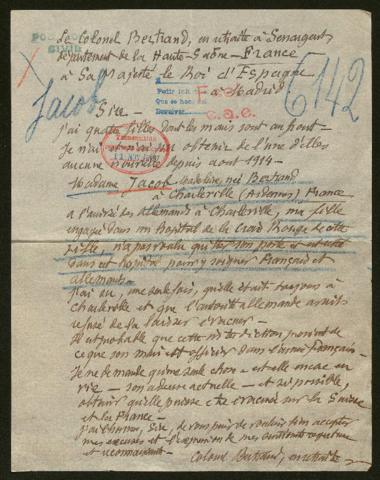 Le Colonel Bertrand, en retraite à Senargent
département de la Haute-Saône - France
à Sa Majesté le Roi d'Espagne
à Madrid
Jacob
6142
Sire -
J'ai quatre filles dont les maris sont au front -
Je n'ai obtenir de l'une d'elles
aucune nouvelle depuis aout 1914 -
Madame Jacob Madeleine, née Bertrand
à Charleville (Ardennes) France
à l'arrivée des Allemands à Charleville, ma fille
engagée dans un Hopital de la Croix Rouge de cette
ville, n'a pas voulu quitter son poste et est restée
dans cet hopital pour y soigner Français et
Allemands -
J'ai su, une seule fois, qu'elle était toujours à
Charleville et que l'autorité allemande avait
refusé de la laisser évacuer -
Il est probable que cette interdiction provient de
ce que son mari est officier dans l'armée Française -
Je ne demande qu'une seule chose - est elle encore en
vie - son adresse actuelle - et si possible,
obtenir qu'elle puisse être évacuée sur la Suisse
et la France -
J'ai l'honneur, Sire, de vous prier de vouloir bien accepter
mes excuses et l'expression de mes
et reconnaissants -
Colonel Bertrand, en retraite